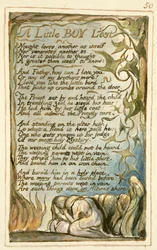 50
A Little BOY Lost
Nought loves another as itself
Nor venerates another so
Nor is it possible to Thought
A greater than itself to know:
And Father, how can I love you,
Or any of my brothers more?
I love you like the little bird
That picks up crumbs around the door.
The Priest sat by and heard the child
In trembling zeal he siez'd his hair:
He led him by his little coat:
And all admir'd the Priestly care.
And standing on the altar high
Lo what a fiend is here! said he:
One who sets reason up for judge
Of our most holy Mystery.
The weeping child could not be heard
The weeping parents wept in vain:
They strip'd him to his little shirt
And bound him in an iron chain.
And burn'd him in a holy place,
Where many had been burn'd before:
The weeping parents wept in vain
Are such things done on Albions shore.